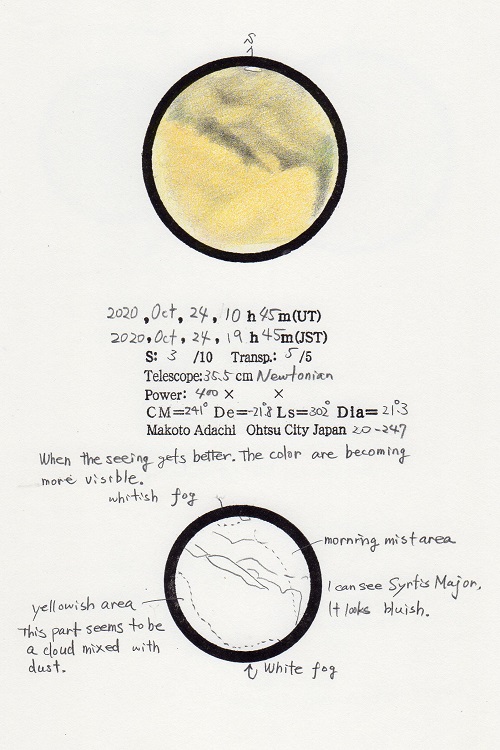 S
2020, Oct, 24, 10 h 45 m (UT)
2020, Oct, 24, 19 h 45 m (JST)
S: 3 /10 Transp.: 5 /5
Telescope: 35.5 cm Newtonian
Power: 400 × ×
CM=241° De=-21.8 Ls=302° Dia=21.3
Makoto Adachi Ohtsu City Japan 20-247
When the seeing gets better. The color are becoming
more visible.
whitish fog
morning mist area
I can see Syrtis Major.
It looks bluish.
yellowish area
This part seems to be
a cloud mixed with
dust.
White fog